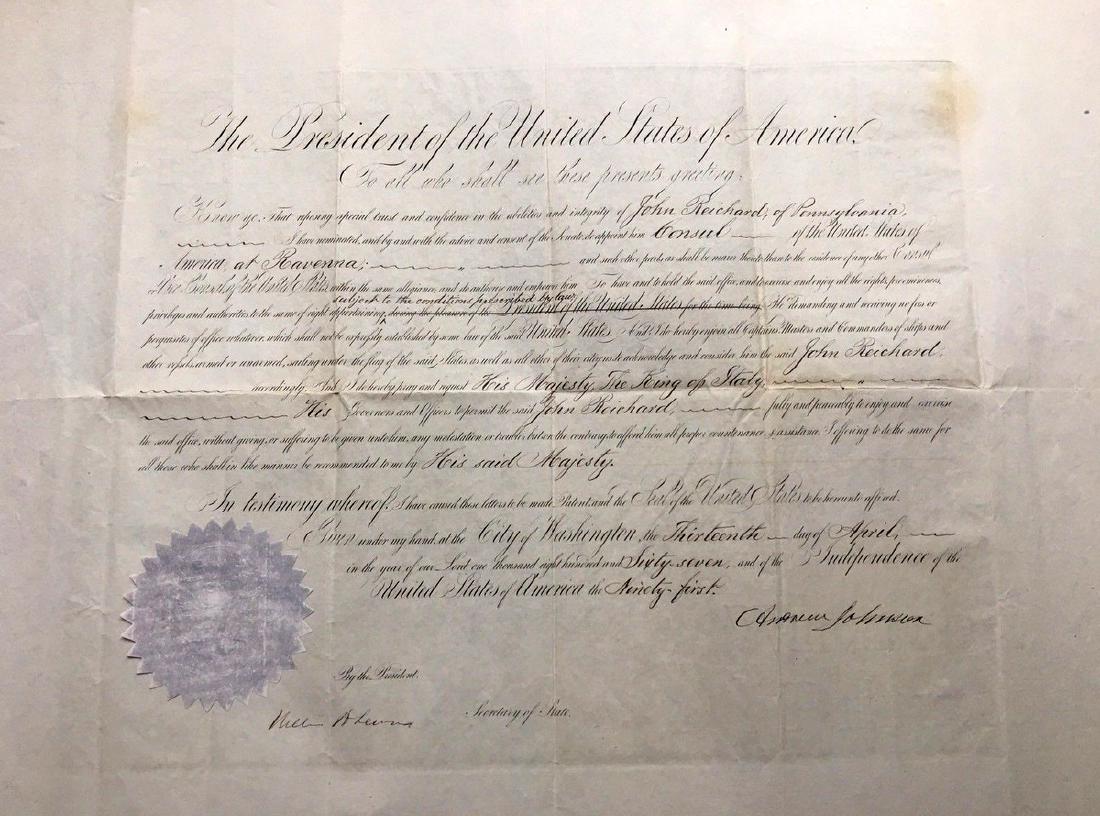 The President of the United States of America,
To all who shall see these presents greeting:
Know ye, That reposing special trust and confidence in the abilities and integrity of John Reichard, of Pennsylvania,
I have nominated, and by and with the advice and consent of the Senate, do appoint him Consul of the United States of
America, at Ravenna; and such other parts, as shall be nearer thereto than to the residence of any other Consul
or Vice Consul of the United States, within the same allegiance, and do authorize and empower him To have and to hold the said office, and to exercise and enjoy all the rights, preeminences,
subject to the conditions prescribed by law,
privileges and authorities to the same of right appertaining, during the pleasure of the President of the United States for the time being. He demanding and receiving no fees or
perquisites of office whatever, which shall not be expressly established by some law of the said United States. And I do hereby enjoin all Captains, Masters and Commanders of ships and
other vessels, armed or unarmed, sailing under the flag of the said States, as well as all other of their citizens to acknowledge and consider him the said John Reichard,
accordingly. And I do hereby pray and request His Majesty, The King of Italy,
His Governors and Officers to permit the said John Reichard, fully and peaceably to enjoy and exercise
the said office, without giving, or suffering to be given unto him, any molestation or trouble, but on the contrary to afford him all proper countenance & assistance. I offering to do the same for
all those who shall in like manner be recommended to me by His said Majesty.
In testimony whereof, I have caused these letters to be made Patent, and the Seal of the United States to be hereunto affixed.
Given under my hand, at the City of Washington, the Thirteenth day of April,
in the year of our Lord one thousand eight hundred and Sixty-seven, and of the Independence of the
United States of America, the Ninety-first.
Andrew Johnson
By the President.
Secretary of State.